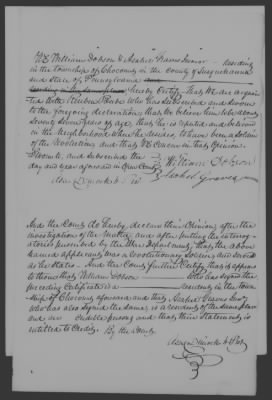 We William Dobson & Asahel Graves Junior - residing
in the township of Choconut in the County of Susquehanna
and State of Pennsylvania
hereby Certify - That We are acquain
ted with Reuben who has subscribed and sworn
to the foregoing declaration; that we believe him to be about
Seventy years of age, that he is reputed and believed
in the Neighborhood where he resides, to have been a Soldier
of the Revolution and that We Concur in that Opinion
and subscribed the
day and year aforesaid in Open Court
William Dobson
Asahel Graves
And the Court do hereby declare their Opinion; after the
investigation of the Matter, and after putting the interrog-
atories prescribed by the War Department; That the above
named applicant was a revolutionary Soldier and served
as he States - And the Court further Certify that it appears
to them that William Dobson who has signed the
preceding Certificate is a resident in the town
ship of Choconut aforesaid and that Asahel Graves Junr
who has also signed the same, is a resident of the same place
and are Credible persons and that their Statement is
entitled to Credit. By the Court